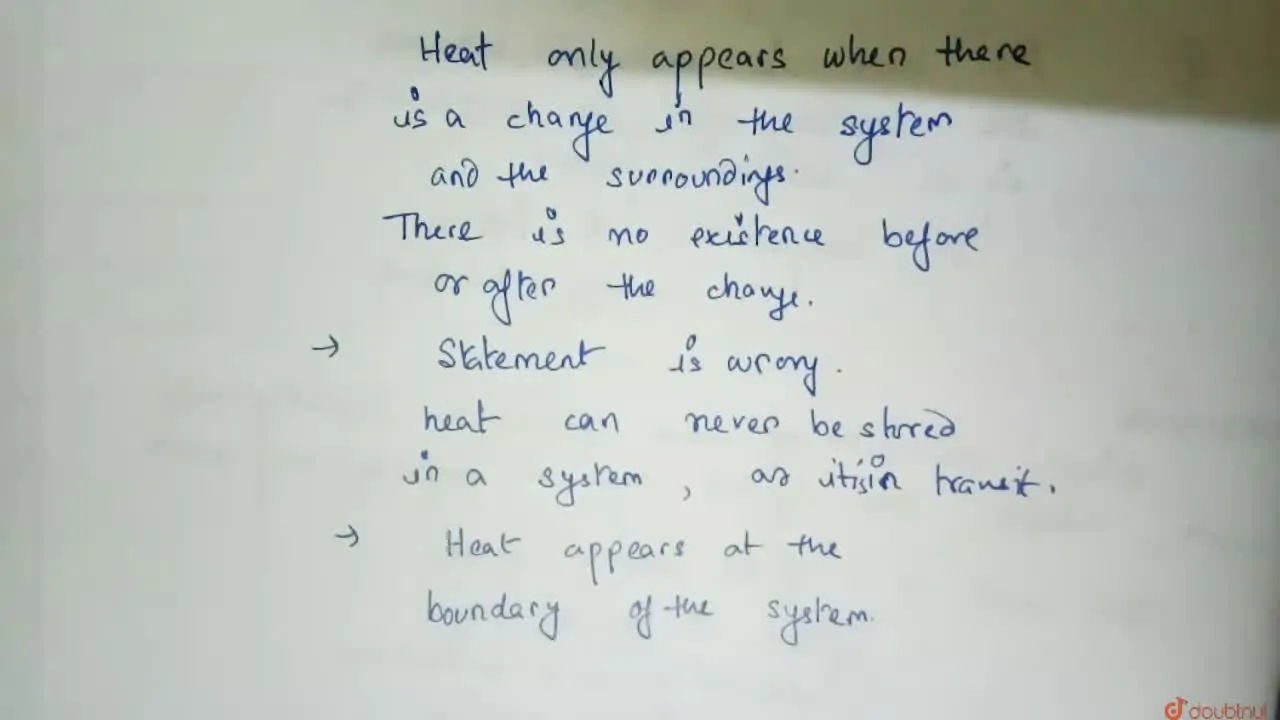 Heat only appears when there
is a change in the system
and the surroundings.
There is no existence before
or after the change.
→ Statement is wrong.
heat can never be stored
in a system, as it is in transit.
→ Heat appears at the
boundary of the system.
doubtnut